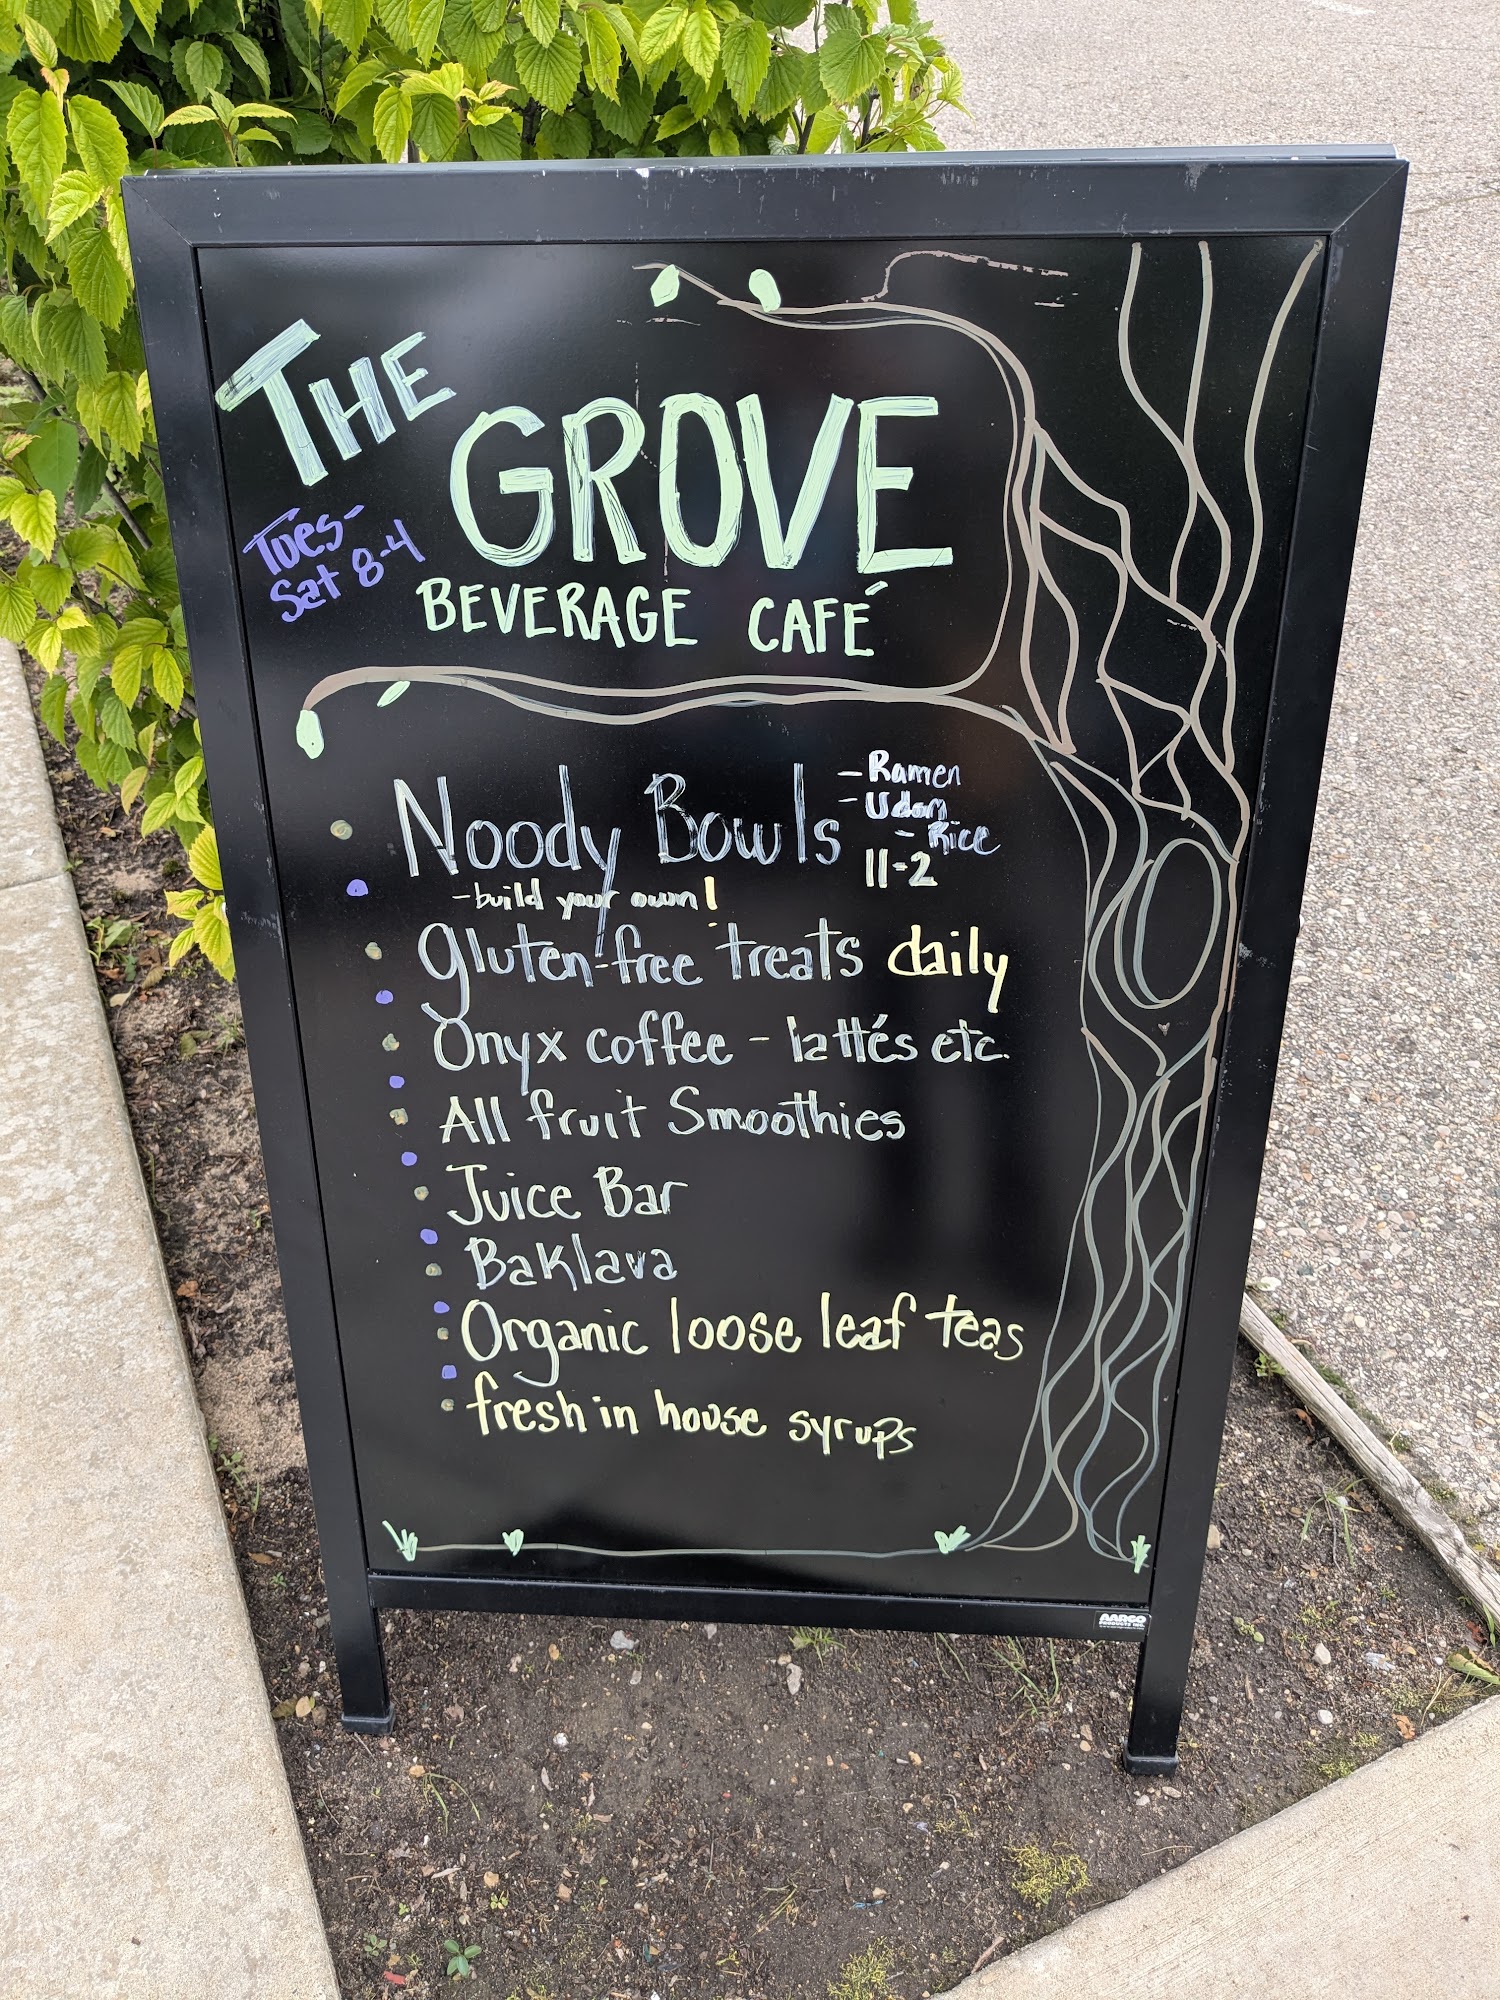 THE
GROVE
Tues-
Sat 8-4
BEVERAGE CAFÉ
Noody Bowls
- Ramen
- Udon
- Rice
11-2
-build your own!
gluten-free treats daily
Onyx coffee - lattés etc.
All fruit Smoothies
Juice Bar
Baklava
Organic loose leaf teas
fresh in house syrups
AARCO
PRODUCTS INC.